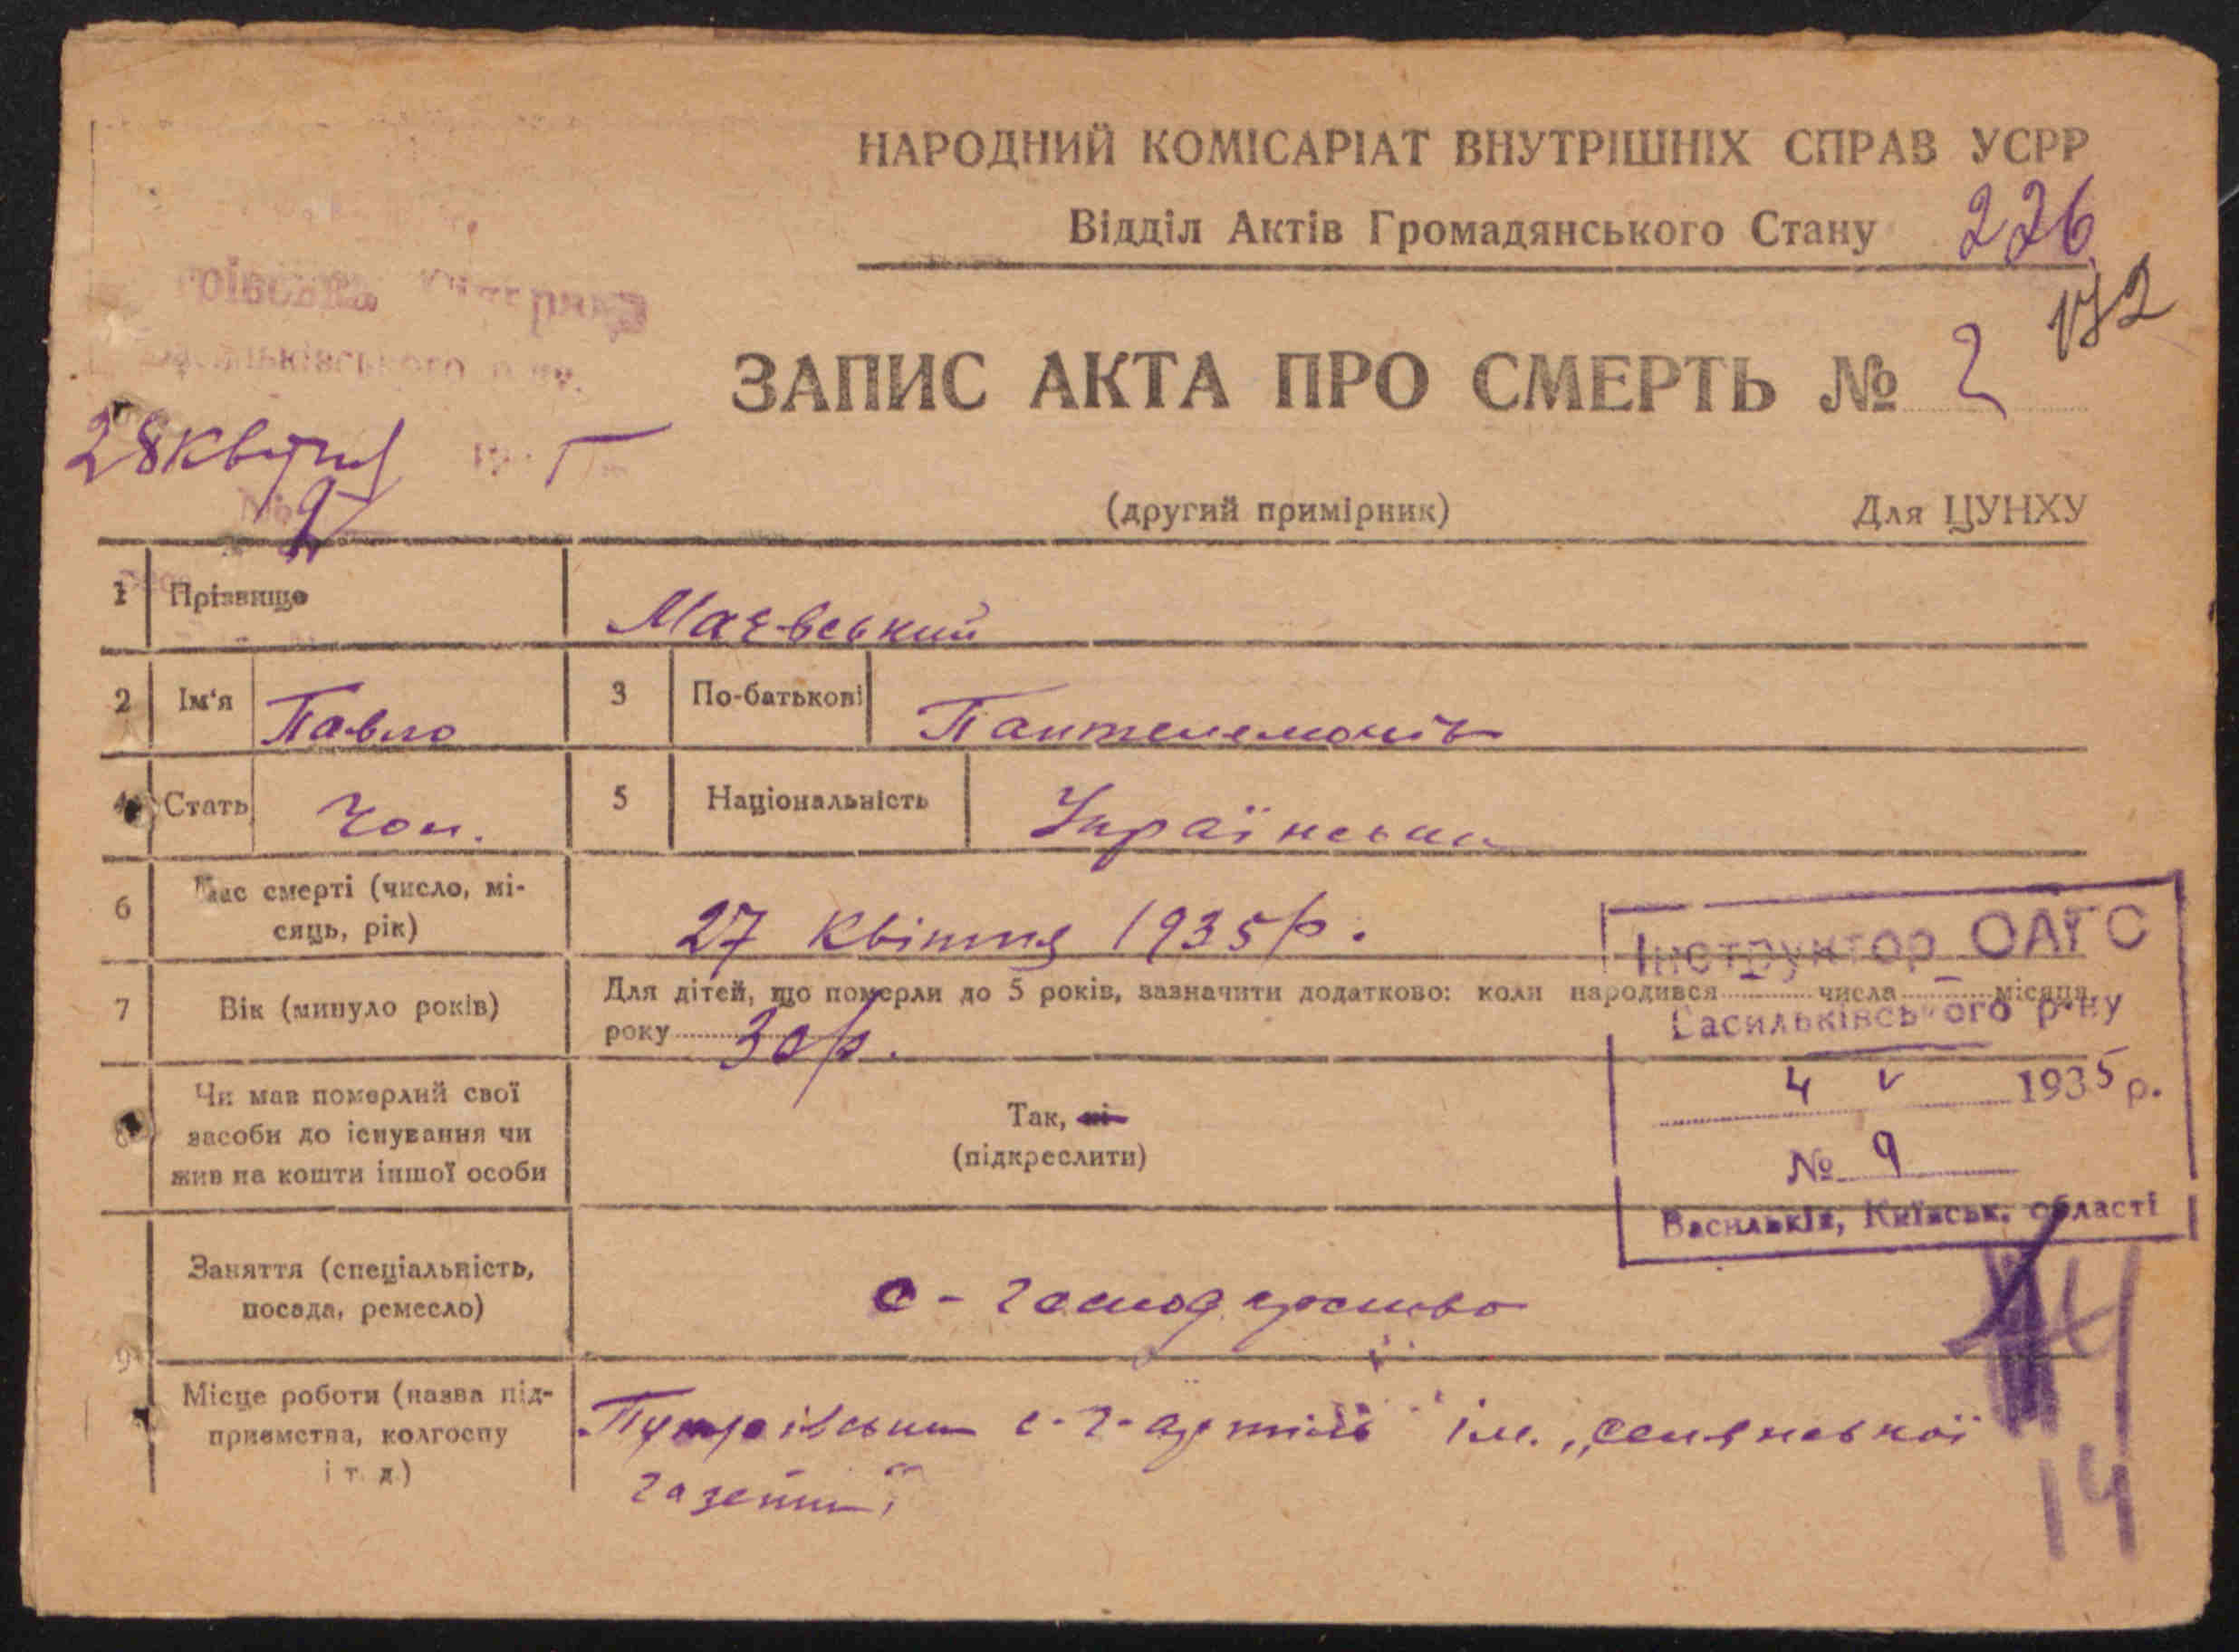 НАРОДНИЙ КОМІСАРІАТ ВНУТРІШНІХ СПРАВ УСРР
Відділ Актів Громадянського Стану 226
172
ЗАПИС АКТА ПРО СМЕРТЬ № 2
28 квітня
№ 9
(другий примірник) Для ЦУНХУ
1 Прізвище Маєвський
2 Ім'я Павло 3 По-батькові Пантелемонів
4 Стать Чол. 5 Національність Українськ
6 Час смерті (число, мі-
сяць, рік) 27 квітня 1935 р.
7 Вік (минуло років) Для дітей, що померли до 5 років, зазначити додатково: коли народився числа місяця
року 30 р.
Чи мав померлий свої
засоби до існування чи
жив на кошти іншої особи
Так, ні
(підкреслити)
Інструктор ОАГС
Васильківського р-ну
4 V 1935 р.
№ 9
Васильків, Київськ. області
9
Заняття (спеціальність,
посада, ремесло) с-господарство
Місце роботи (назва під-
приємства, колгоспу
і т. д.)
Путрівська с-г-артіль ім. „Селянської
газети"
14
14